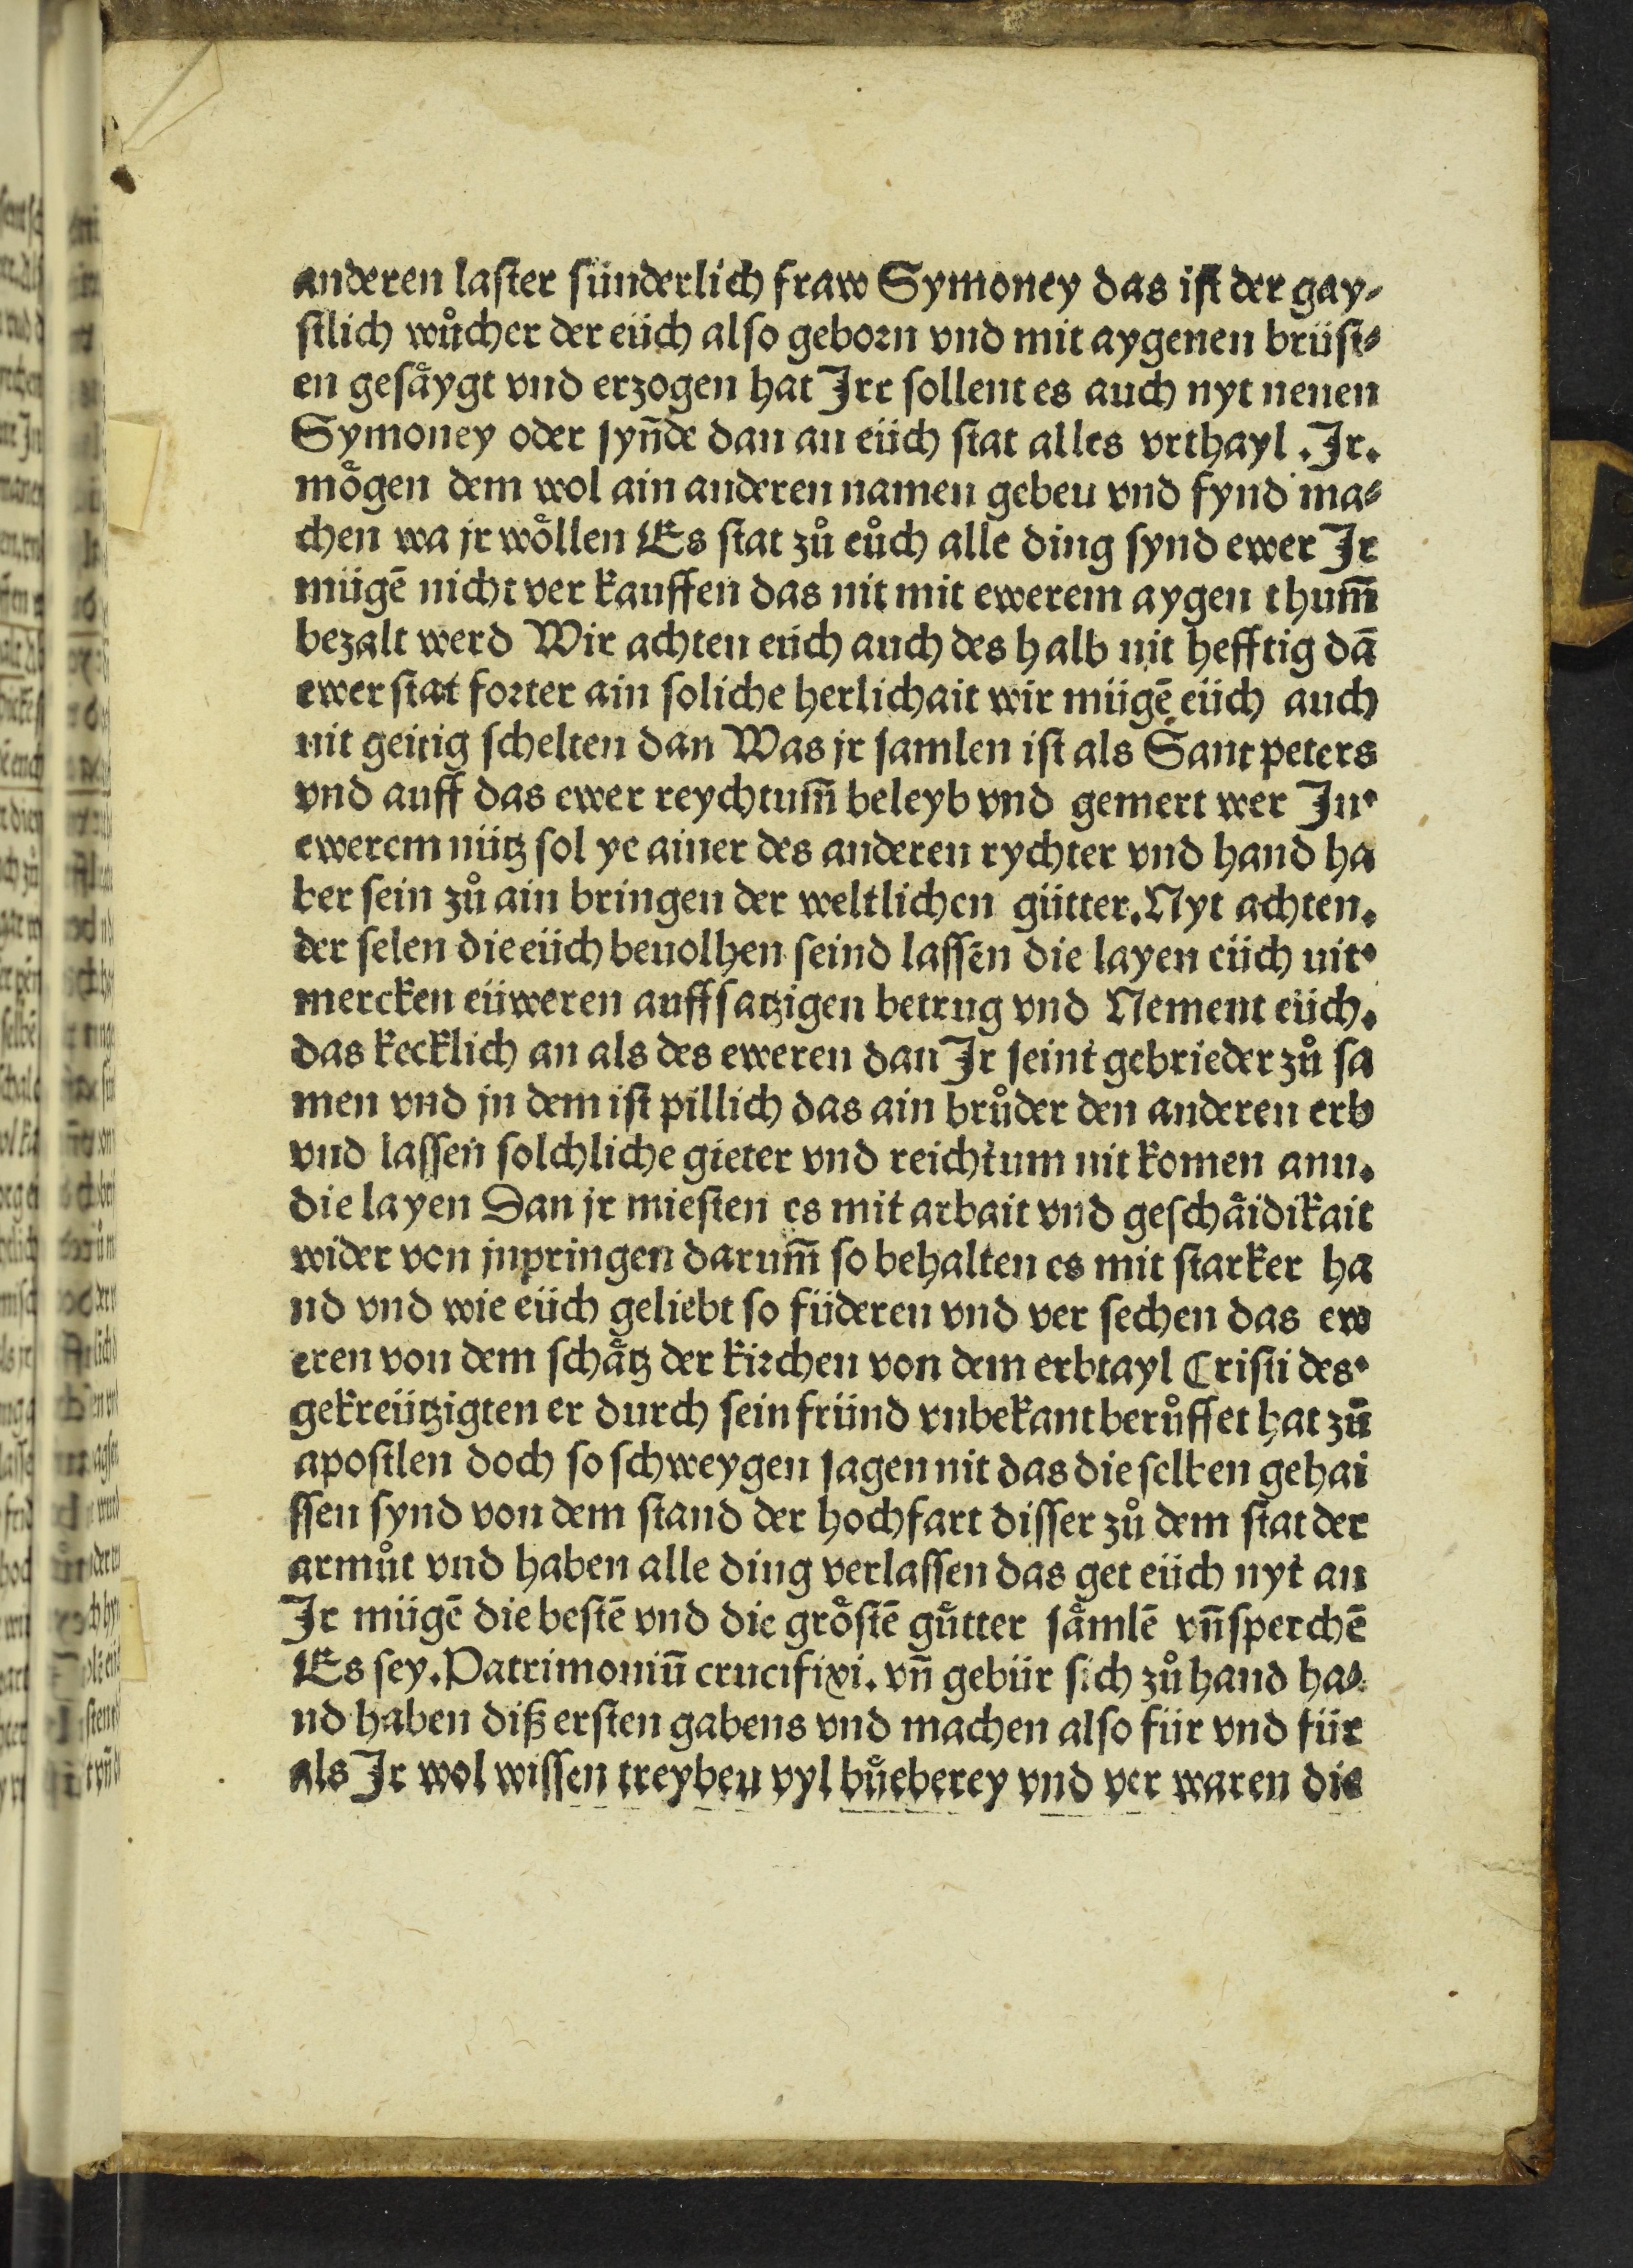 anderen laster sünderlich fraw Symoney das ist der gay⸗
stlich wůcher der eüch also geborn vnd mit aygenen brüst⸗
en gesäygt vnd erzogen hat Irr sollent es auch nyt nenen
Symoney oder synͤde dan an eüch stat alles vrthayl .Ir.
mögen dem wol ain anderen namen geben vnd fynd ma⸗
chen wa jr wöllen Es stat zů eůch alle ding synd ewer Ir
mügē nicht ver kauffen das nit mit ewerem aygen thum̄
bezalt werd Wir achten eüch auch des halb nit hefftig dā
ewer stat forter ain soliche herlichait wir mügē eüch auch
nit geitig schelten dan Was jr samlen ist als Sant peters
vnd auff das ewer reychtum̄ beleyb vnd gemert wer In
ewerem nütz sol ye ainer des anderen rychter vnd hand ha
ber sein zů ain bringen der weltlichen gütter. Nyt achten.
der selen die eüch beuolhen seind lassen die layen eüch nit
mercken eüweren auffsatzigen betrug vnd Nement eüch.
das kecklich an als des eweren dan Ir seint gebrieder zů sa
men vnd jn dem ist pillich das ain brůder den anderen erb
vnd lassen solchliche gieter vnd reichtum nit komen ann.
die layen Dan jr miesten es mit arbait vnd geschäidikait
wider von jnpringen darum̄ so behalten es mit starker ha
nd vnd wie eüch geliebt so füderen vnd ver sechen das ew
eren von dem schätz der kirchen von dem erbtayl Cristi des
gekreützigten er durch sein fründ vnbekant berůffet hat zū
apostlen doch so schweygen sagen nit das die selben gehai
ssen synd von dem stand der hochfart disser zů dem stat der
armůt vnd haben alle ding verlassen das get eüch nyt an
Ir mügē die bestē vnd die gröstē gůtter sämlē vn̄ sperchē
Es sey. Patrimoniū crucifixi. vn̄ gebür sich zů hand ha⸗
nd haben diß ersten gabens vnd machen also für vnd für
als Ir wol wissen treyben vyl bůeberey vnd ver waren die